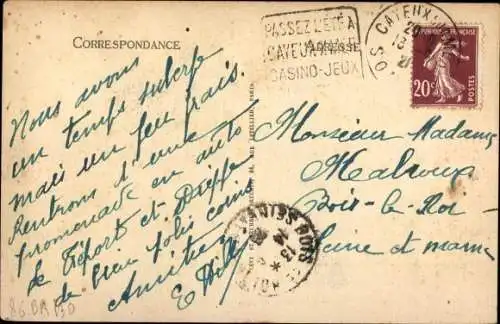 CORRESPONDANCE
ADRESSE
PASSEZ L'ÉTÉ A
CAYEUX
CASINO-JEUX
CAYEUX
RÉPUBLIQUE FRANÇAISE
20c
POSTES
Nous avons
un temps superbe
mais un peu frais.
Rentrons d'une
promenade en auto
de Tréport et Dieppe
de beau jolis coins
Amitiés
Monsieur Madame
Malvoux
Bois-le-Roi
Seine et marne
BOIS
SEINE
13
86.BA